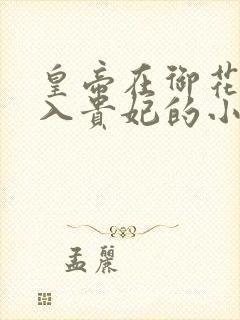 皇帝在御花
入貴妃的小
孟麗